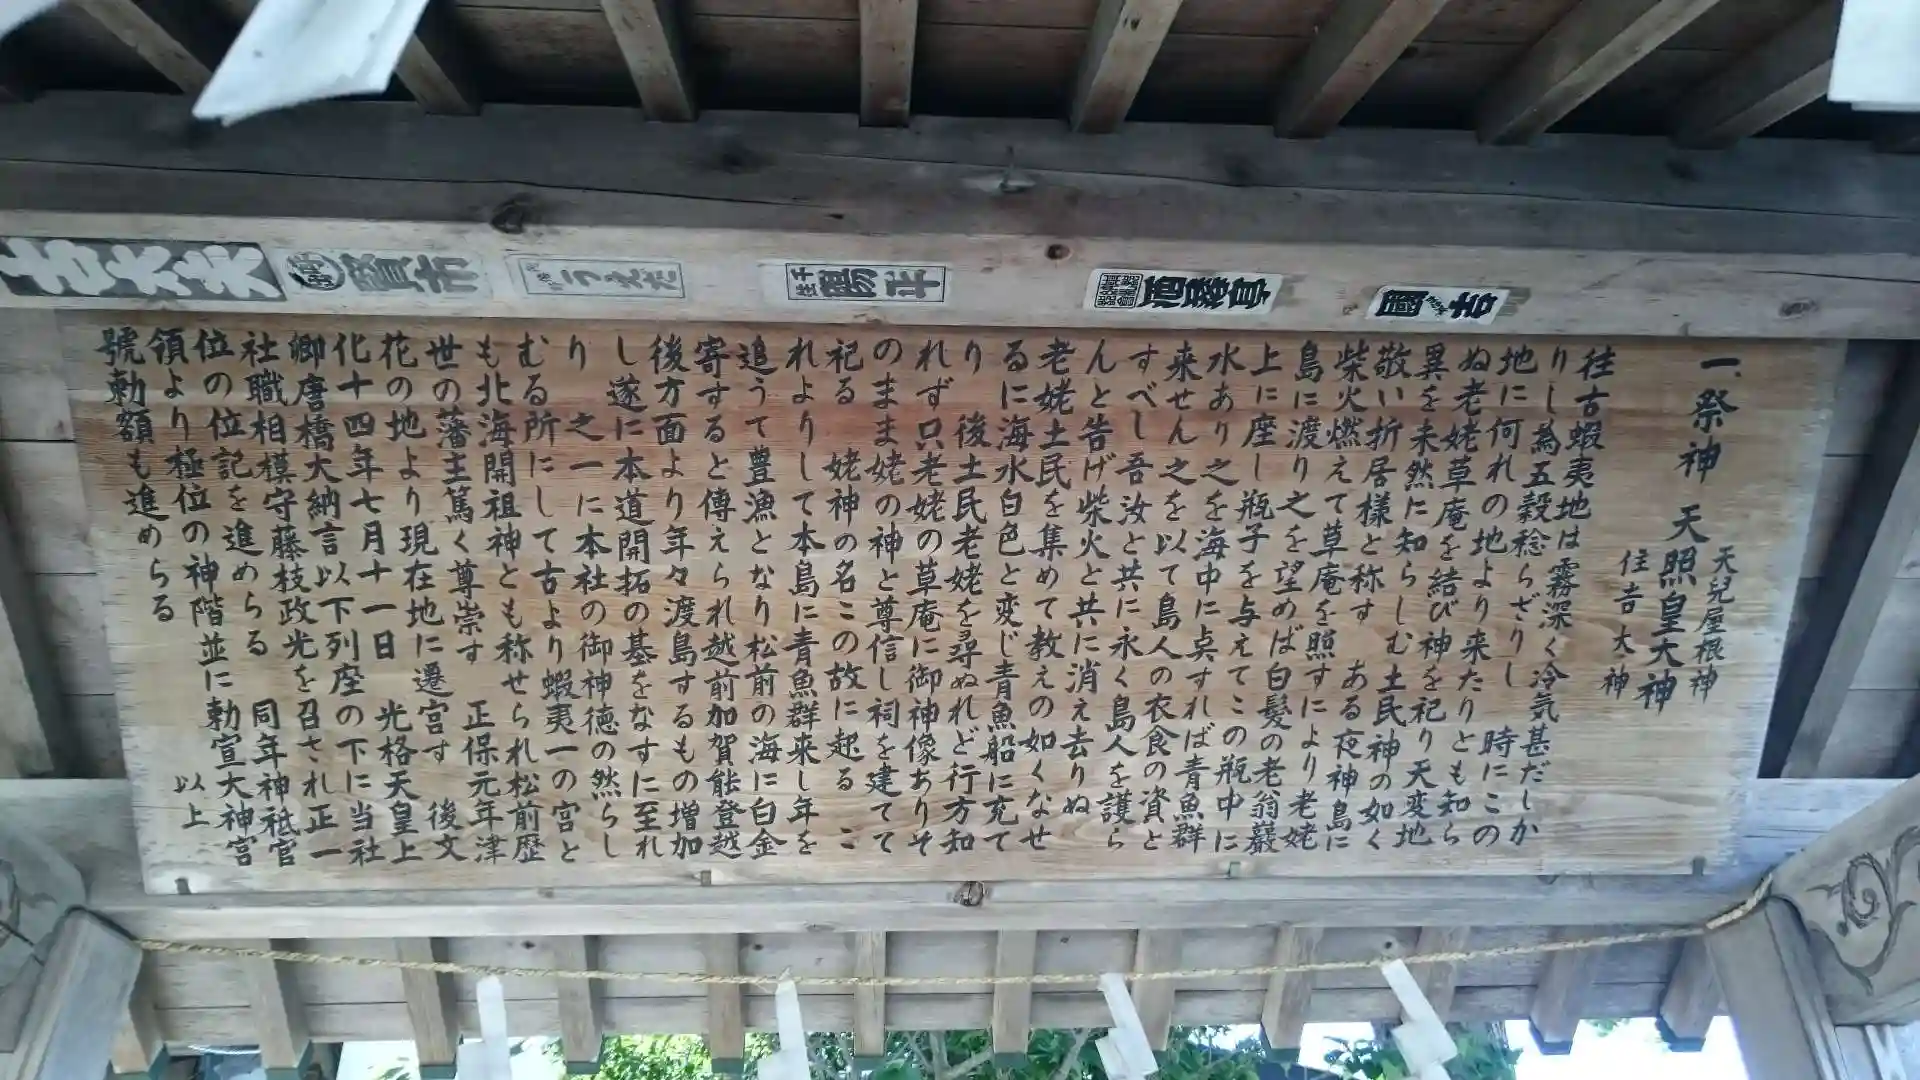 一、祭神 天照皇大神
天兒屋根神
住吉大神
往古蝦夷地は霧深く冷気甚だしか
りし為五穀稔らざりし 時にこの
地に何れの地より来たりとも知ら
ぬ老姥草庵を結び神を祀り天変地
異を未然に知らしむ土民神の如く
敬い折居様と称す ある夜神島に
柴火燃えて草庵を照すにより老姥
島に渡り之を望めば白髪の老翁巖
上に座し瓶子を与えてこの瓶中に
水あり之を海中に点すれば青魚群
来せん之を以て島人の衣食の資と
すべし吾汝と共に永く島人を護ら
んと告げ柴火と共に消え去りぬ
老姥土民を集めて教えの如くなせ
るに海水白色と変じ青魚船に充て
り 後土民老姥を尋ぬれど行方知
れず只老姥の草庵に御神像ありそ
のまま姥の神と尊信し祠を建てて
祀る 姥神の名この故に起る こ
れよりして本島に青魚群来し年を
追うて豊漁となり松前の海に白金
寄すると傳えられ越前加賀能登越
後方面より年々渡島するもの増加
し遂に本道開拓の基をなすに至れ
り 之一に本社の御神徳の然らし
むる所にして古より蝦夷一の宮と
も北海開祖神とも称せられ松前歴
世の藩主篤く尊崇す 正保元年津
花の地より現在地に遷宮す 後文
化十四年七月十一日 光格天皇上
卿唐橋大納言以下列座の下に当社
社職相模守藤枝政光を召され正一
位の位記を進めらる 同年神祗官
領より極位の神階並に勅宣大神宮
號勅額も進めらる 以上
うえだ